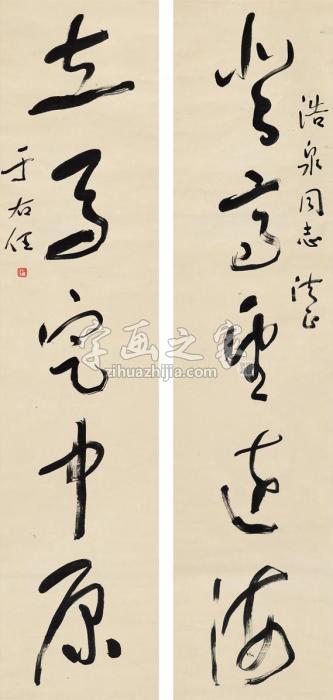 浩泉同志法正
登高望远海
立马定中原
于右任
字画之家
zihuazhijia.com